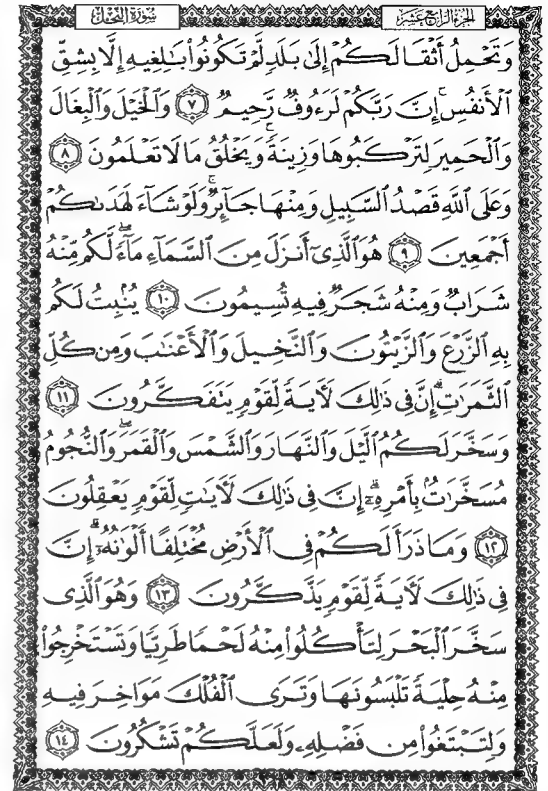 الجزء الرابع عشر سورة النحل
وَتَحْمِلُ أَثْقَالَكُمْ إِلَىٰ بَلَدٍ لَّمْ تَكُونُوا۟ بَٰلِغِيهِ إِلَّا بِشِقِّ
ٱلْأَنفُسِ ۚ إِنَّ رَبَّكُمْ لَرَءُوفٌ رَّحِيمٌ ٧ وَٱلْخَيْلَ وَٱلْبِغَالَ
وَٱلْحَمِيرَ لِتَرْكَبُوهَا وَزِينَةً ۚ وَيَخْلُقُ مَا لَا تَعْلَمُونَ ٨
وَعَلَى ٱللَّهِ قَصْدُ ٱلسَّبِيلِ وَمِنْهَا جَآئِرٌ ۚ وَلَوْ شَآءَ لَهَدَىٰكُمْ
أَجْمَعِينَ ٩ هُوَ ٱلَّذِىٓ أَنزَلَ مِنَ ٱلسَّمَآءِ مَآءً ۖ لَّكُم مِّنْهُ
شَرَابٌ وَمِنْهُ شَجَرٌ فِيهِ تُسِيمُونَ ١٠ يُنۢبِتُ لَكُم
بِهِ ٱلزَّرْعَ وَٱلزَّيْتُونَ وَٱلنَّخِيلَ وَٱلْأَعْنَٰبَ وَمِن كُلِّ
ٱلثَّمَرَٰتِ ۗ إِنَّ فِى ذَٰلِكَ لَءَايَةً لِّقَوْمٍ يَتَفَكَّرُونَ ١١
وَسَخَّرَ لَكُمُ ٱلَّيْلَ وَٱلنَّهَارَ وَٱلشَّمْسَ وَٱلْقَمَرَ ۖ وَٱلنُّجُومُ
مُسَخَّرَٰتٌۢ بِأَمْرِهِۦٓ ۗ إِنَّ فِى ذَٰلِكَ لَءَايَٰتٍ لِّقَوْمٍ يَعْقِلُونَ
١٢ وَمَا ذَرَأَ لَكُمْ فِى ٱلْأَرْضِ مُخْتَلِفًا أَلْوَٰنُهُۥٓ ۗ إِنَّ
فِى ذَٰلِكَ لَءَايَةً لِّقَوْمٍ يَذَّكَّرُونَ ١٣ وَهُوَ ٱلَّذِى
سَخَّرَ ٱلْبَحْرَ لِتَأْكُلُوا۟ مِنْهُ لَحْمًا طَرِيًّا وَتَسْتَخْرِجُوا۟
مِنْهُ حِلْيَةً تَلْبَسُونَهَا وَتَرَى ٱلْفُلْكَ مَوَاخِرَ فِيهِ
وَلِتَبْتَغُوا۟ مِن فَضْلِهِۦ وَلَعَلَّكُمْ تَشْكُرُونَ ١٤